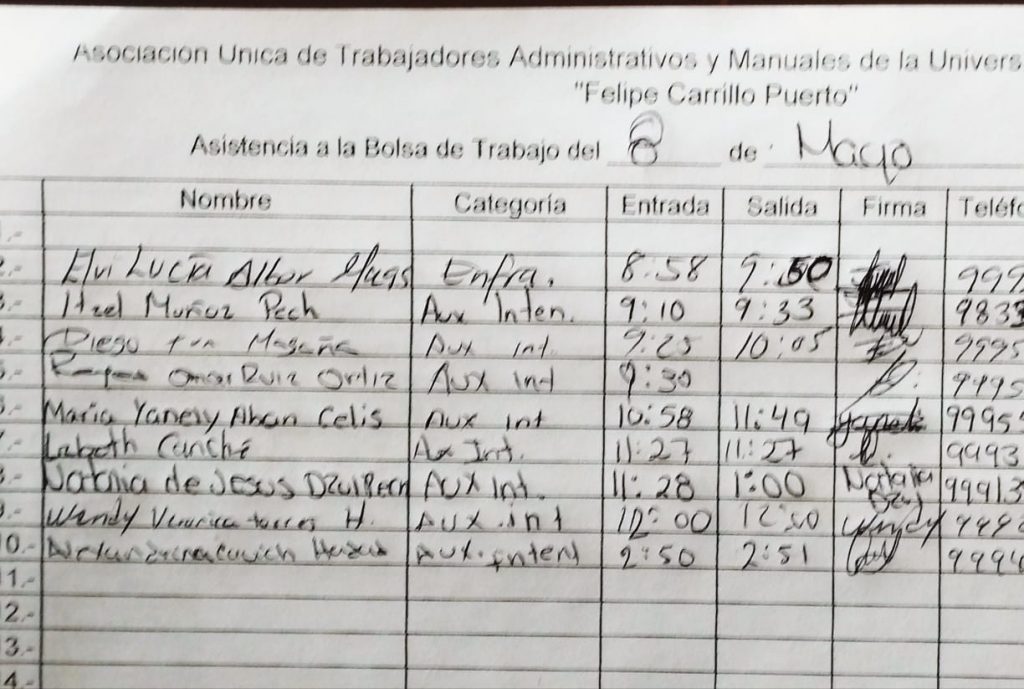 Asociación Unica de Trabajadores Administrativos y Manuales de la Univers
"Felipe Carrillo Puerto"
Asistencia a la Bolsa de Trabajo del 8 de Mayo
Nombre Categoría Entrada Salida Firma Teléfo
.-
.- Elvi Lucía Albor Enfra. 8:58 9:50 999
3.- Itzel Muñoz Pech Aux Inten. 9:10 9:33 9833
4.- Diego Magaña Aux int 9:25 10:05 9995
5.- Omar Ruiz Ortiz Aux int 9:30 9995
6.- María Yanesy Aban Celis Aux int 10:58 11:49 9995
7.- Canché Ax Int. 11:27 11:27 9993
8.- de Jesus Dzul Pech Aux Int. 11:28 1:00 Natalia Dzul 99913
9.- Wendy Veronica torres H. Aux.int 12:00 12:00 Wendy 999
10.- Aux.intent 2:50 2:51 9994
11.-
2.-
3.-
4.-